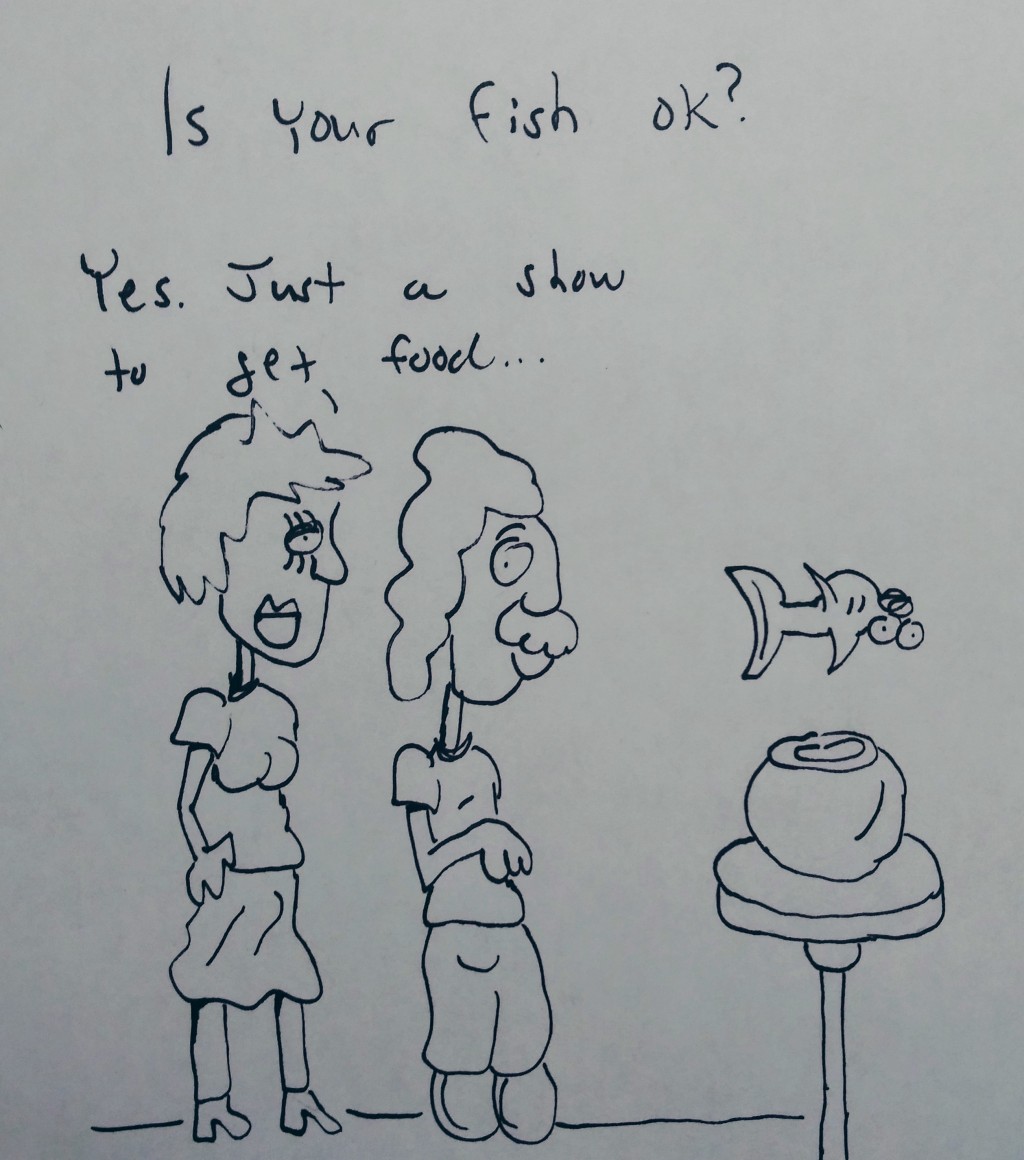 Is your fish ok?
Yes. Just a show
to get food...